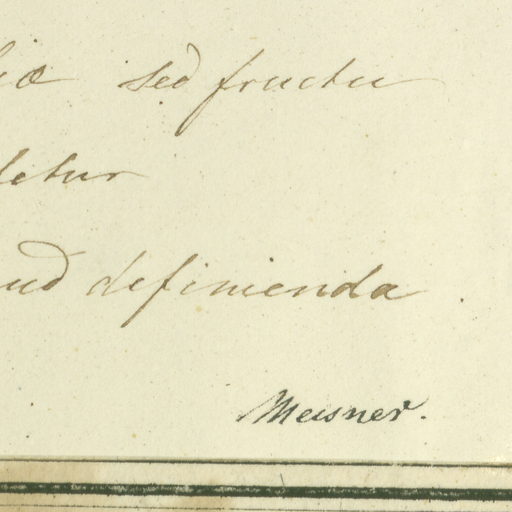 sed fructu
etur
definienda
Meisner.